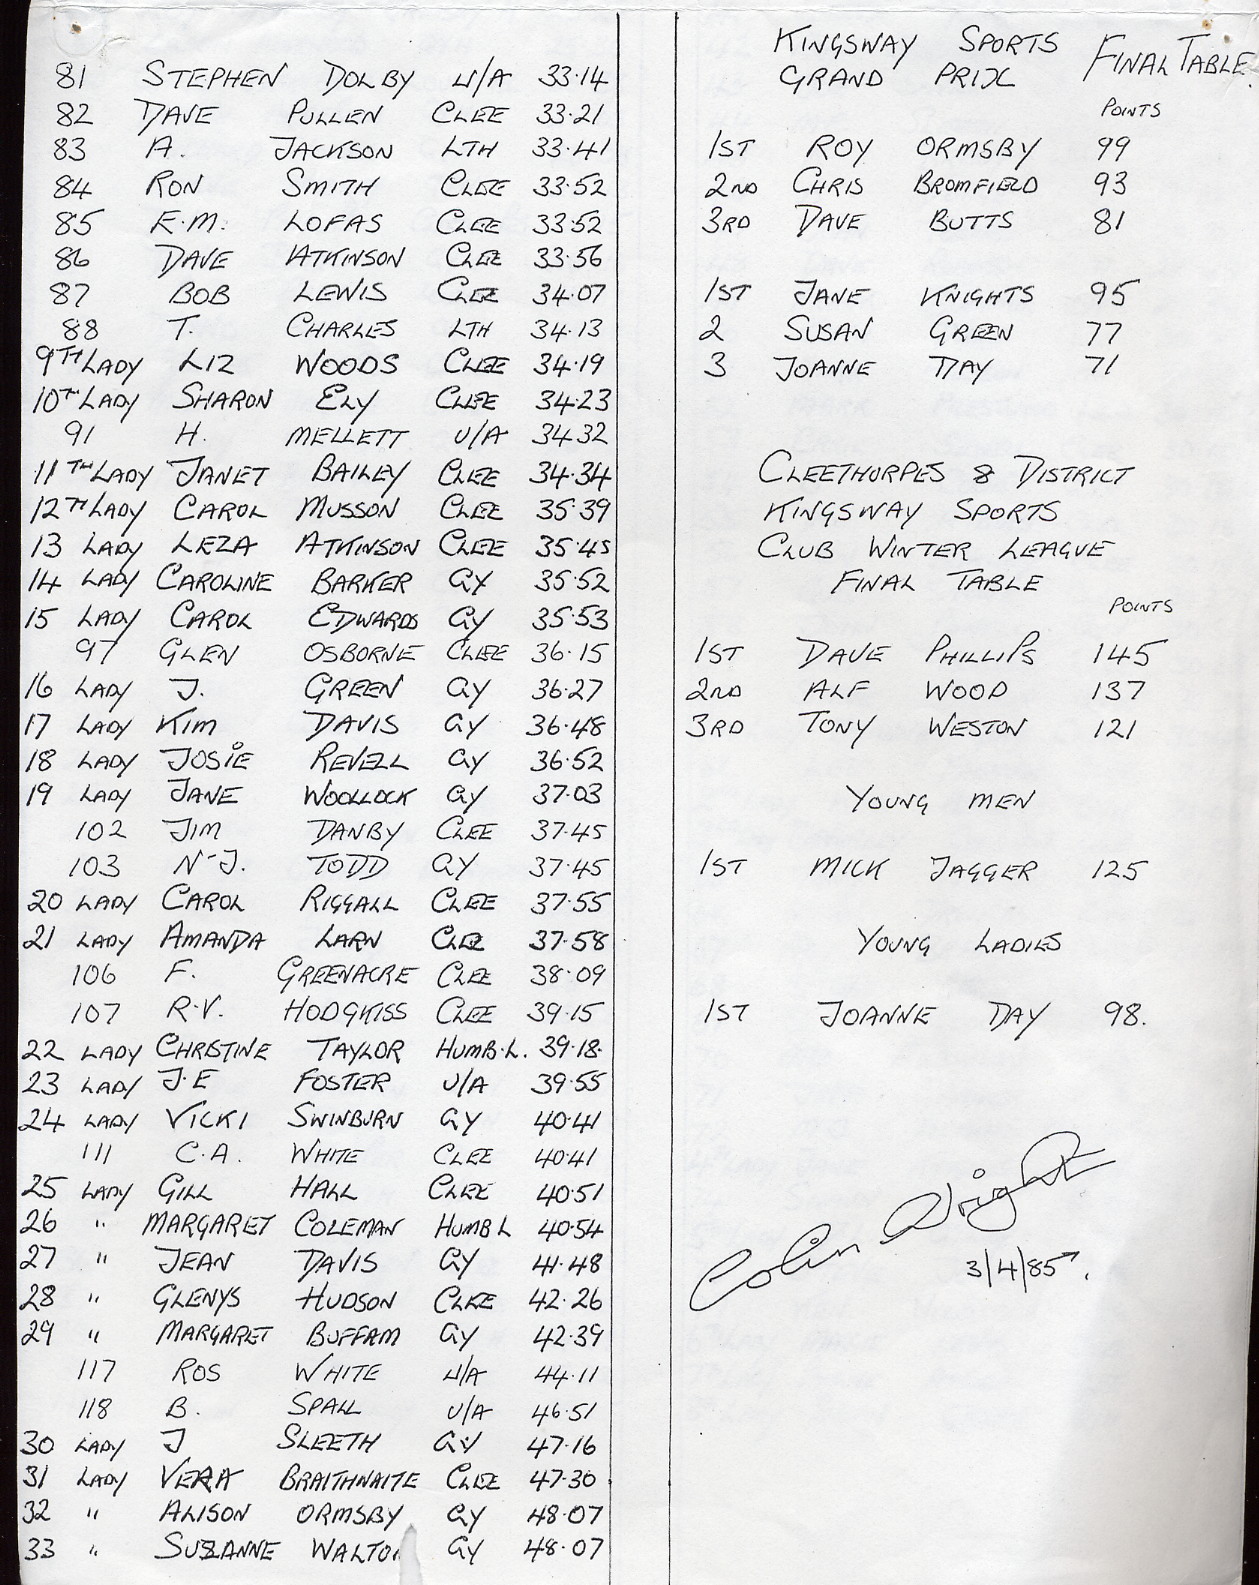 81 STEPHEN DOLBY U/A 33.14
82 DAVE PULLEN CLEE 33.21
83 A. JACKSON LTH 33.41
84 RON SMITH CLEE 33.52
85 E.M. LOFAS CLEE 33.52
86 DAVE ATKINSON CLEE 33.56
87 BOB LEWIS CLEE 34.07
88 T. CHARLES LTH 34.13
9TH LADY LIZ WOODS CLEE 34.19
10TH LADY SHARON ELY CLEE 34.23
91 H. MELLETT U/A 34.32
11TH LADY JANET BAILEY CLEE 34.34
12TH LADY CAROL MUSSON CLEE 35.39
13 LADY LEZA ATKINSON CLEE 35.45
14 LADY CAROLINE BARKER GY 35.52
15 LADY CAROL EDWARDS GY 35.53
97 GLEN OSBORNE CLEE 36.15
16 LADY J. GREEN GY 36.27
17 LADY KIM DAVIS GY 36.48
18 LADY JOSIE REVELL GY 36.52
19 LADY JANE WOOLLOCK GY 37.03
102 JIM DANBY CLEE 37.45
103 N.J. TODD GY 37.45
20 LADY CAROL RIGGALL CLEE 37.55
21 LADY AMANDA LARN CLEE 37.58
106 F. GREENACRE CLEE 38.09
107 R.V. HODGKISS CLEE 39.15
22 LADY CHRISTINE TAYLOR HUMB.L. 39.18
23 LADY J.E FOSTER U/A 39.55
24 LADY VICKI SWINBURN GY 40.41
111 C.A. WHITE CLEE 40.41
25 LADY GILL HALL CLEE 40.51
26 " MARGARET COLEMAN HUMB L 40.54
27 " JEAN DAVIS GY 41.48
28 " GLENYS HUDSON CLEE 42.26
29 " MARGARET BUFFAM GY 42.39
117 ROS WHITE U/A 44.11
118 B. SPALL U/A 46.51
30 LADY J SLEETH GY 47.16
31 LADY VERA BRAITHWAITE CLEE 47.30
32 " ALISON ORMSBY GY 48.07
33 " SUZANNE WALTON GY 48.07
KINGSWAY SPORTS
GRAND PRIX FINAL TABLE
POINTS
1ST ROY ORMSBY 99
2ND CHRIS BROMFIELD 93
3RD DAVE BUTTS 81
1ST JANE KNIGHTS 95
2 SUSAN GREEN 77
3 JOANNE DAY 71
CLEETHORPES & DISTRICT
KINGSWAY SPORTS
CLUB WINTER LEAGUE
FINAL TABLE
POINTS
1ST DAVE PHILLIPS 145
2ND ALF WOOD 137
3RD TONY WESTON 121
YOUNG MEN
1ST MICK JAGGER 125
YOUNG LADIES
1ST JOANNE DAY 98.
Colin Wright
3/4/85.